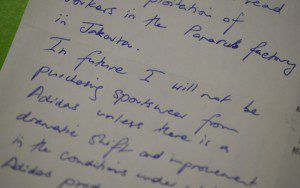 ploitation of
read
workers in the Panarub factory
in Jakarta.
In future I will not be
purchasing sportswear from
Adidas unless there is a
dramatic shift and improvement
in the conditions under
Adidas prod